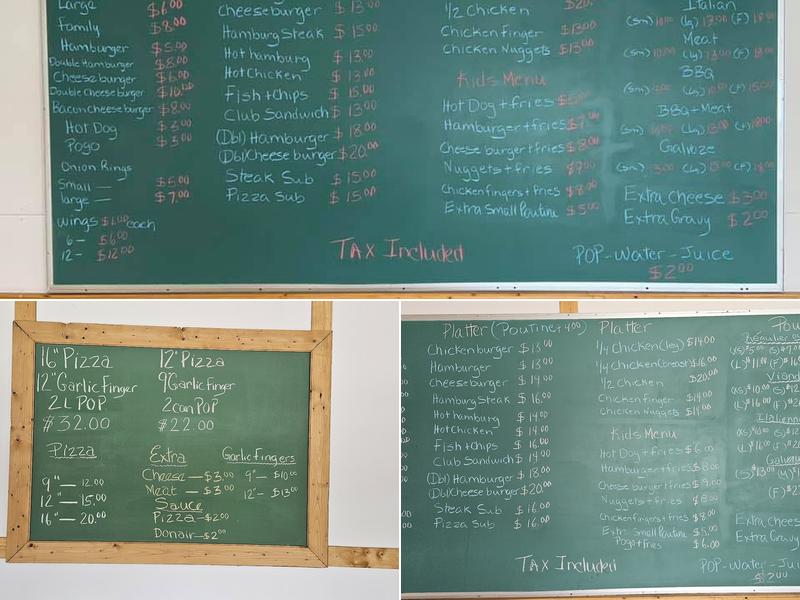 Large $6.00
Family $8.00
Hamburger $5.00
Double Hamburger $8.00
Cheeseburger $6.00
Double Cheeseburger $10.00
Baconcheeseburger $8.00
Hot Dog $3.00
Pogo $3.00
Onion Rings
Small — $5.00
large — $7.00
wings $1.00 each
6 - $6.00
12 - $12.00
Cheeseburger $13.00
Hamburg Steak $15.00
Hot hamburg $13.00
Hot Chicken $13.00
Fish + Chips $15.00
Club Sandwich $13.00
(Dbl) Hamburger $18.00
(Dbl) Cheese burger $20.00
Steak Sub $15.00
Pizza Sub $15.00
1/2 Chicken $20.
Chicken finger $13.00
Chicken Nuggets $13.00
Kids Menu
Hot Dog + fries $5.00
Hamburger + fries $7.00
Cheese burger + fries $8.00
Nuggets + fries $7.00
Chicken fingers + fries $8.00
Extra Small Poutine $5.00
Italian
Meat
BBQ
BBQ + Meat
Galvaze
Extra Cheese $3.00
Extra Gravy $2.00
TAX Included
POP - Water - Juice
$2.00
16" Pizza
12" Garlic Finger
2L POP
$32.00
12" Pizza
9" Garlic finger
2 can POP
$22.00
Pizza
9" — 12.00
12" — 15.00
16" — 20.00
Extra
Cheese — $3.00
Meat — $3.00
Sauce
Pizza — $2.00
Donair — $2.00
Garlic Fingers
9" — $10.00
12" — $13.00
Platter (Poutine + 4.00)
Chicken burger $13.00
Hamburger $13.00
Cheese burger $14.00
Hamburg Steak $16.00
Hot hamburg $14.00
Hot Chicken $14.00
Fish + Chips $16.00
Club Sandwich $14.00
(Dbl) Hamburger $18.00
(Dbl) Cheese burger $20.00
Steak Sub $16.00
Pizza Sub $16.00
Platter
1/4 Chicken (leg) $14.00
1/4 Chicken (breast) $16.00
1/2 Chicken $20.00
Chicken finger $14.00
Chicken Nuggets $14.00
Kids Menu
Hot Dog + fries $6.00
Hamburger + fries $8.00
Cheese burger + fries $9.00
Nuggets + fries $8.00
Chicken fingers + fries $8.00
Extra Small Poutine $5.00
Pogo + fries $6.00
Pou
Régulier
Viand
Italienn
Extra Chees
Extra Gravy
TAX Included
POP - Water - Jui
$2.00